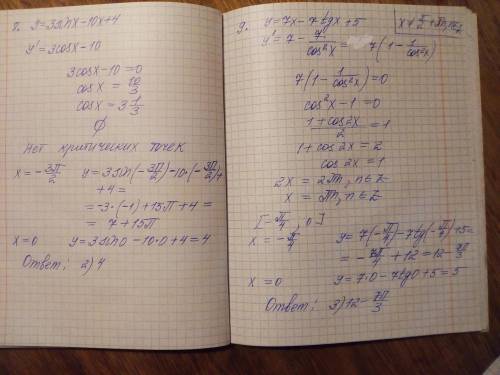 8. y=3sinx-10x+4
y'=3cosx-10
3cosx-10=0
cosx=10/3
cosx=3 1/3
∅
Нет критических точек
x=-3π/2 y=3sin(-3π/2)-10·(-3π/2)+
+4=
=-3·(-1)+15π+4=
=7+15π
x=0 y=3sin0-10·0+4=4
Ответ: 2) 4
9. y=7x-7tgx+5 x≠π/2+πn, n∈Z
y'=7-7/cos²x=7(1-1/cos²x)
7(1-1/cos²x)=0
cos²x-1=0
(1+cos2x)/2=1
1+cos2x=2
cos2x=1
2x=2πn, n∈Z
x=πn, n∈Z
[-π/4; 0]
x=-π/4 y=7(-π/4)-7tg(-π/4)+5=
=-7π/4+12=12-7π/3
x=0 y=7·0-7tg0+5=5
Ответ: 3) 12-7π/3